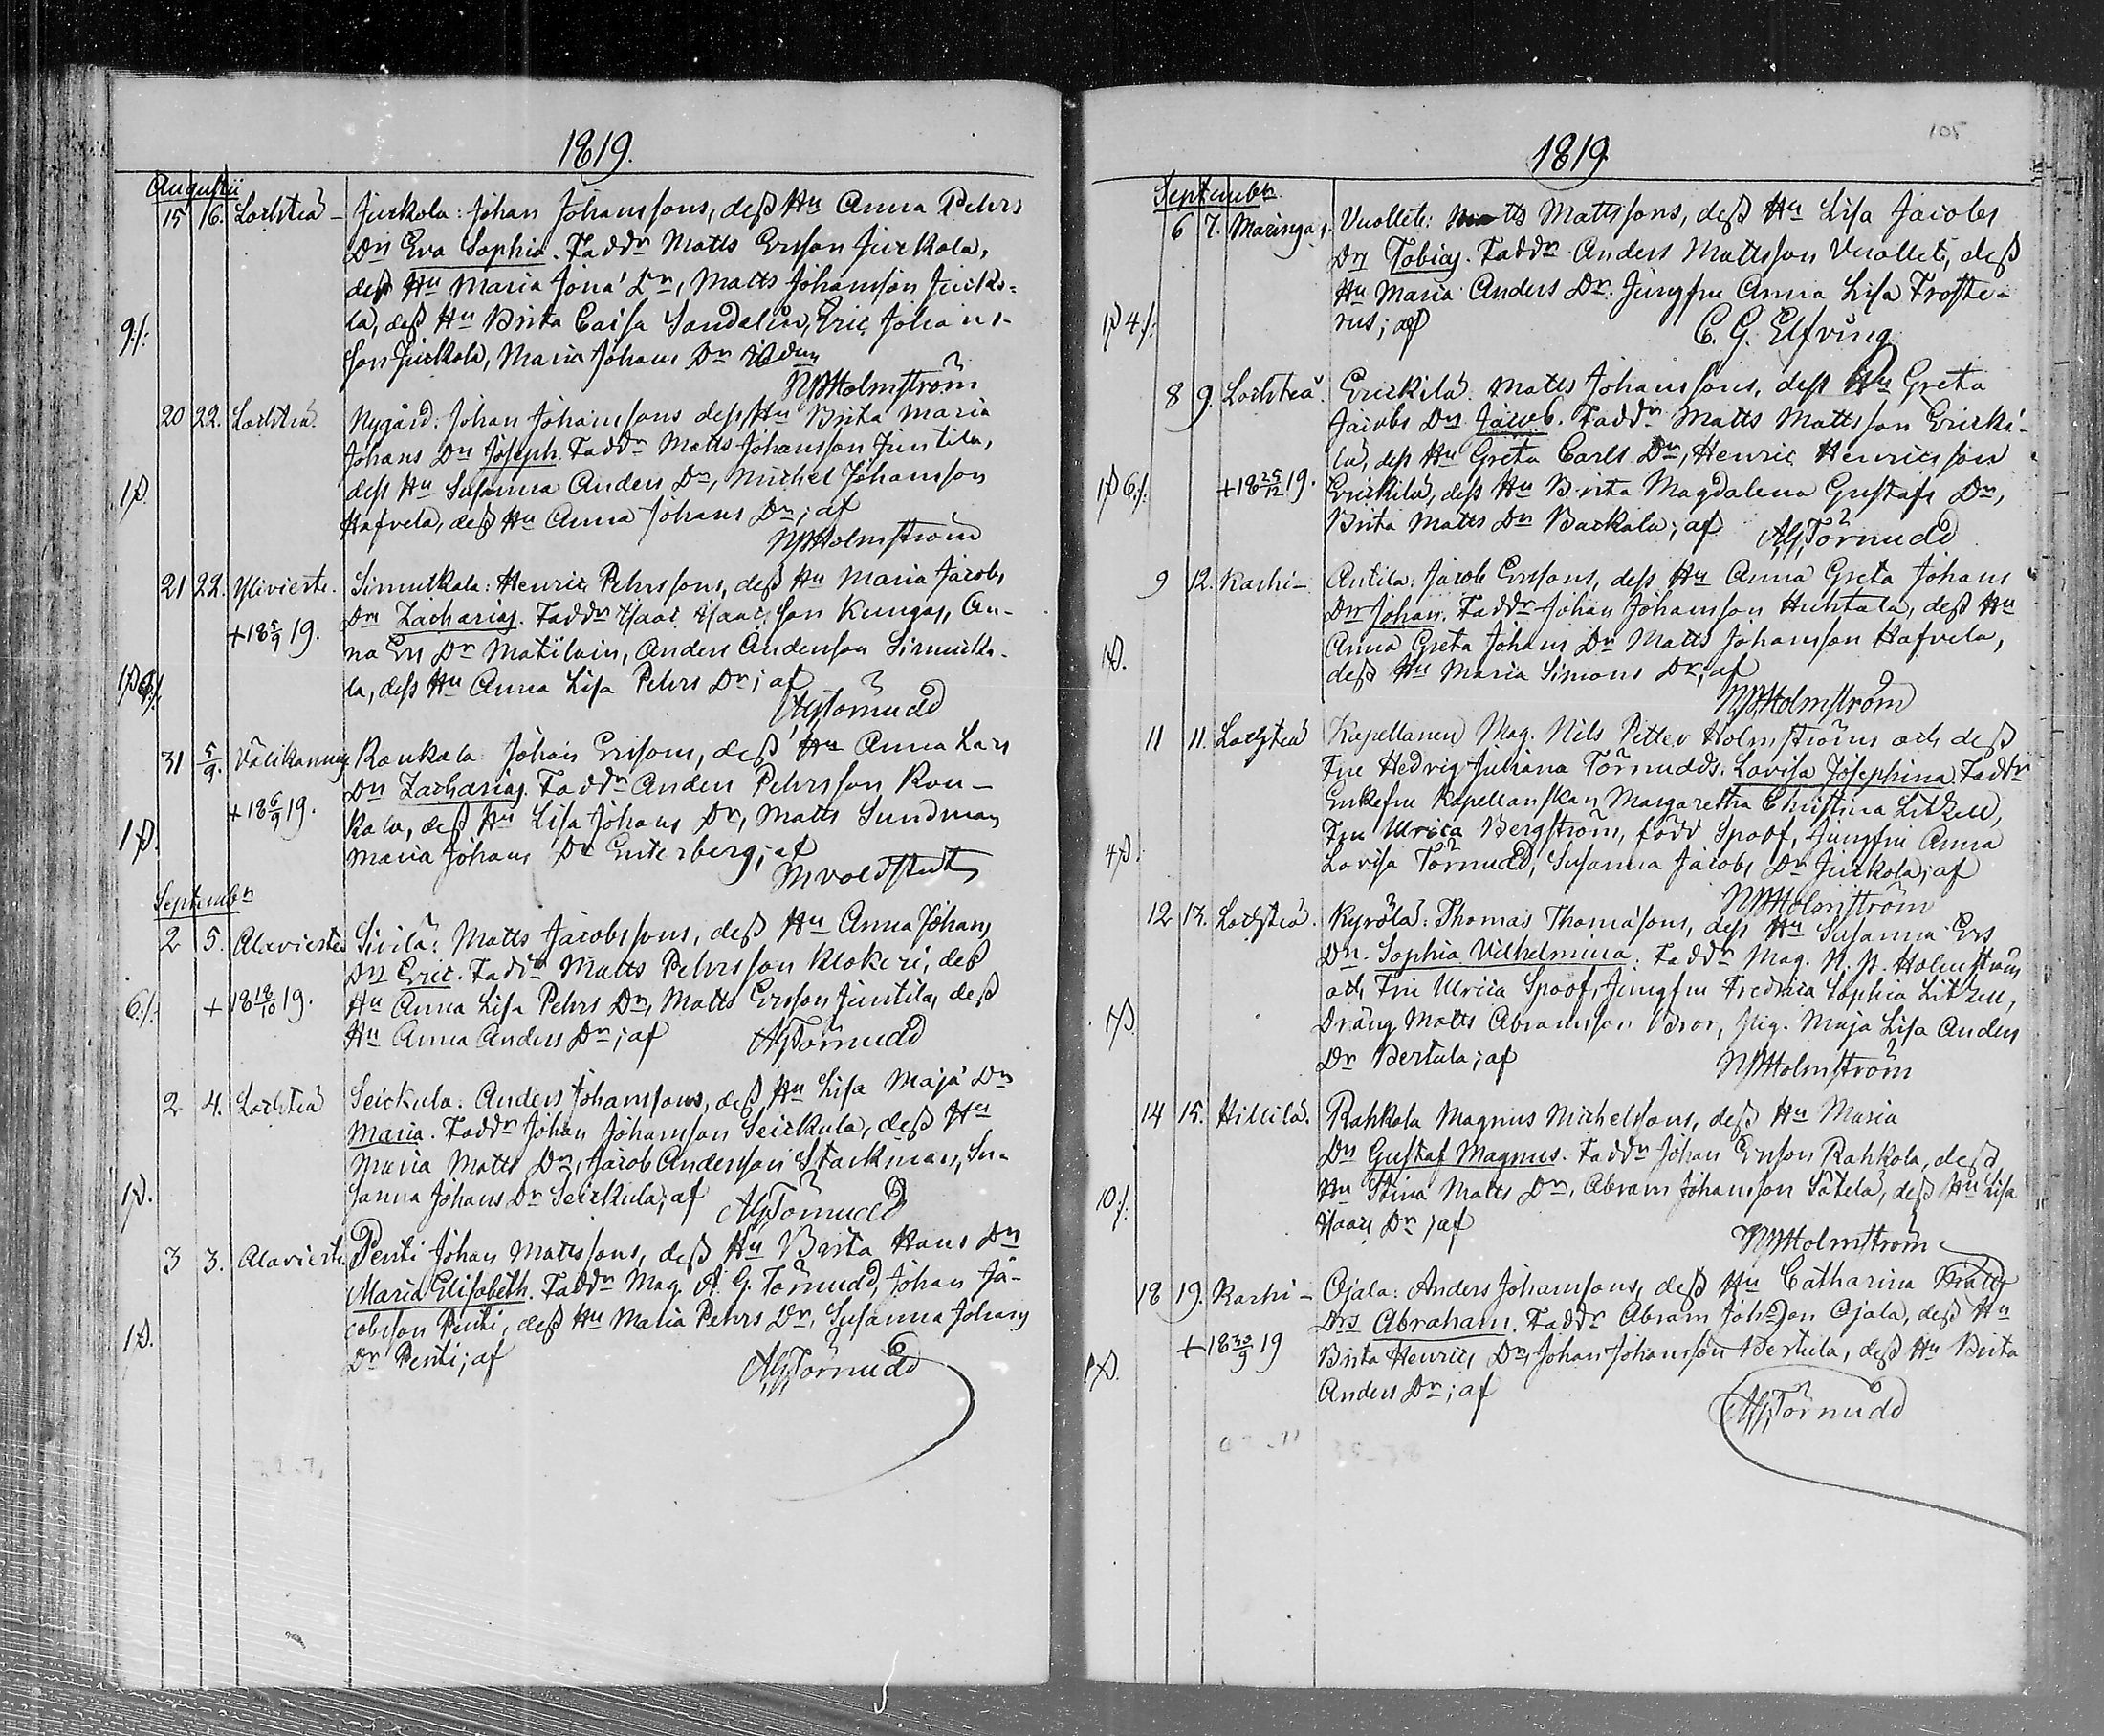 1819.
Augustii
15 16. Lochteå - Jurkola: Johan Johanssons, deß Hu Anna Pehrs
Dn Eva Sophia. Faddr Matts Ersson Jurkola,
deß Hu Maria Jona Dr, Matts Johansson Jurko-
la, deß Hu Brita Caisa Sandelin, Eric Johans-
9 /: son Jurkola, Maria Johans Dr
NPHolmström
20 22. Lochteå. Nygård: Johan Johanssons deß Hu Brita Maria
Johans Dn Joseph. Faddr Matts Johansson Juntila,
deß Hu Susanna Anders Dr, Michel Johansson
1 p. Hafvela, deß Hu Anna Johans Dr; af
NPHolmström
21 22. Ylivieska. Simukkala: Henric Pehrssons, deß Hu Maria Jacobs
+18 5/9 19. Dn Zacharias. Faddr Isaac Isaacsson Kungas, An-
na Ers Dr Matilain, Anders Andersson Simukka-
la, deß Hu Anna Lisa Pehrs Dr; af
AGTörnudd
31 5/9. Välikannus Raukala Johan Erssons, deß Hu Anna Lars
Dn Zacharias. Faddr Anders Pehrsson Rau-
+18 6/9 19. kala, deß Hu Lisa Johans Dr, Matts Sundman
1 p. Maria Johans Dr Enterberg; af
Mvoldstedt
September
2 5. Alavieska Sivilä: Matts Jacobssons, deß Hu Anna Johans
Dn Eric. Faddr Matts Pehrsson Klokeri, deß
6 /: +18 18/10 19. Hu Anna Lisa Pehrs Dr, Matts Ersson Juntila, deß
Hu Anna Anders Dr; af AGTörnudd
2 4. Lochteå Seickula: Anders Johanssons, deß Hu Lisa Maja Dn
Maria. Faddr Johan Johansson Seickula, deß Hu
Maria Matts Dr, Jacob Andersson Stackman, Su-
1 p. sanna Johans Dr Seickula; af AGTörnudd
3 3. Alavieska Penti Johan Mattssons, deß Hu Brita Hans Dn
Maria Elisabeth. Faddr Mag. A. G. Törnudd, Johan Ja-
cobsson Penti, deß Hu Maria Pehrs Dr, Susanna Johans
1 p. Dr Penti; af AGTörnudd
105
1819
September
6 7. Maringais. Vuollet: Matts Mattssons, deß Hu Lisa Jacobs
Dn Tobias. Faddr Anders Mattsson Vuollet, deß
Hu Maria Anders Dr. Jungfru Anna Lisa Froste-
1 p 4 /: rus; af C. G. Elfving
8 9. Lochteå. Erickilä. Matts Johanssons, deß Hu Greta
Jacobs Dn Jacob. Faddr Matts Mattsson Ericki-
lä, deß Hu Greta Carls Dr, Henric Henricsson
1 p 6 /: +18 25/12 19. Erickilä, deß Hu Brita Magdalena Gustafs Dr,
Brita Matts Dr Backala; af AGTörnudd
9 12. Karhi - Antila: Jacob Erssons, deß Hu Anna Greta Johans
Dn Johan. Faddr Johan Johansson Huhtala, deß Hu
1 p. Anna Greta Johans Dr Matts Johansson Hafvela,
deß Hu Maria Simons Dr; af
NPHolmström
11 11. Lochteå Kapellanen Mag. Nils Petter Holmströms och deß
Fru Hedvig Juliana Törnudds: Lovisa Josephina. Faddr
Enkefru Kapellanskan Margaretha Christina Litzell,
Fru Ulrica Bergström, född Spoof, Jungfru Anna
4 p. Lovisa Törnudd, Susanna Jacobs Dr Jurkola; af
NPHolmström
12 13. Lochteå. Kyrölä: Thomas Thomassons, deß Hu Susanna Ers
Dn. Sophia Vilhelmina. Faddr Mag. N. P. Holmström
och Fru Ulrica Spoof, Jungfru Fredrica Sophia Litzell,
1 p. Dräng Matts Abramsson Bror, Pig. Maja Lisa Anders
Dr Bertula; af NPHolmström
14 15. Hillilä. Rahkola Magnus Michelssons, deß Hu Maria
Dn Gustaf Magnus. Faddr Johan Ersson Rahkola, deß
10 /: Hu Stina Matts Dr, Abram Johansson Sätelä, deß Hu Lisa
Isaacs Dr; af
NPHolmström
18 19. Karhi - Ojala: Anders Johanssons, deß Hu Catharina Matts
Drs Abraham. Faddr Abram Johsson Ojala, deß Hu
+18 30/9 19 Brita Henrics Dr, Johan Johansson Bertula, deß Hu Brita
1 p. Anders Dr; af
AGTörnudd